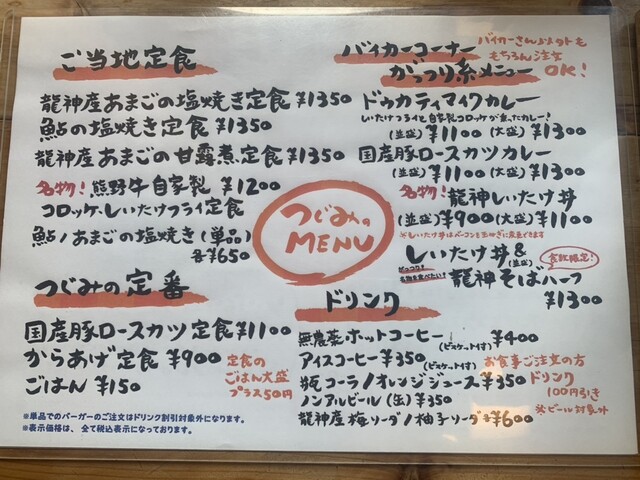 ご当地定食
龍神産あまごの塩焼き定食 ¥1350
鮎の塩焼き定食 ¥1350
龍神産あまごの甘露煮定食 ¥1350
名物! 熊野牛自家製 ¥1200
コロッケ、しいたけフライ定食
鮎/あまごの塩焼き(単品)
各¥650
つぐみの定番
国産豚ロースカツ定食 ¥1100
からあげ定食 ¥900
ごはん ¥150
定食の
ごはん大盛
プラス50円
※単品でのバーガーのご注文はドリンク割引対象外になります。
※表示価格は、全て税込表示になっております。
つぐみの
MENU
バイカーコーナー
がっつり系メニュー
バイカーさん以外も
もちろん注文
OK!
ドゥカティマイクカレー
しいたけフライと自家製コロッケが乗ったカレー!
(並盛) ¥1100 (大盛) ¥1300
国産豚ロースカツカレー
(並盛) ¥1100 (大盛) ¥1300
名物! 龍神しいたけ丼
(並盛) ¥900 (大盛) ¥1100
しいたけ丼 &
(並盛)
龍神そばハーフ
¥1300
ドリンク
無農薬ホットコーヒー (ビスケット付) ¥400
アイスコーヒー ¥350 (ビスケット付)
瓶コーラ/オレンジジュース ¥350
ノンアルビール (缶) ¥350
龍神産梅ソーダ/柚子ソーダ 各¥600
お食事ご注文の方
ドリンク
100円引き
※ビール対象外